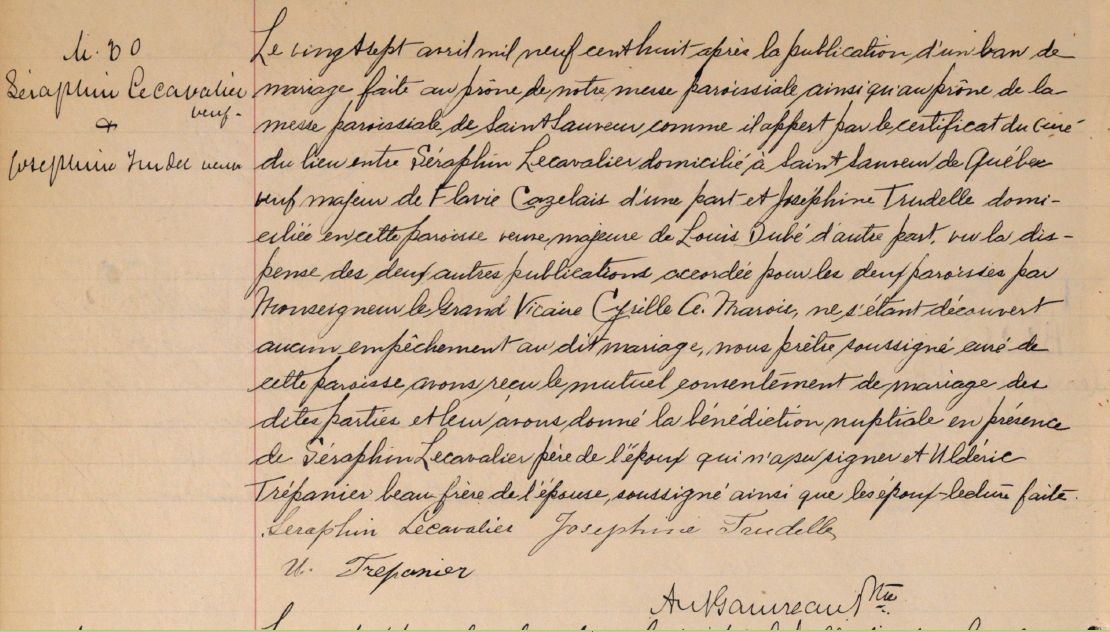 M. 30
Séraphin Lecavalier
veuf.
&
Joséphine Trudel veuve
Le vingt sept avril mil neuf cent huit après la publication d'un ban de
mariage faite au prône de notre messe paroissiale ainsi qu'au prône de la
messe paroissiale de Saint Sauveur comme il appert par le certificat du curé
du lieu entre Séraphin Lecavalier domicilié à Saint Sauveur de Québec
veuf majeur de Flavie Cazelais d'une part et Joséphine Trudelle domi-
ciliée en cette paroisse veuve majeure de Louis Dubé d'autre part, vu la dis-
pense des deux autres publications accordée pour les deux paroisses par
Monseigneur le Grand Vicaire Cyrille A. Marois, ne s'étant découvert
aucun empêchement au dit mariage, nous prêtre soussigné curé de
cette paroisse, avons reçu le mutuel consentement de mariage des
dites parties et leur avons donné la bénédiction nuptiale en présence
de Séraphin Lecavalier père de l'époux qui n'a pu signer et Uldéric
Trépanier beau-frère de l'épouse, soussigné ainsi que les époux - lecture faite.
Seraphin Lecavalier Josephine Trudelle
U. Trepanier
Ptre